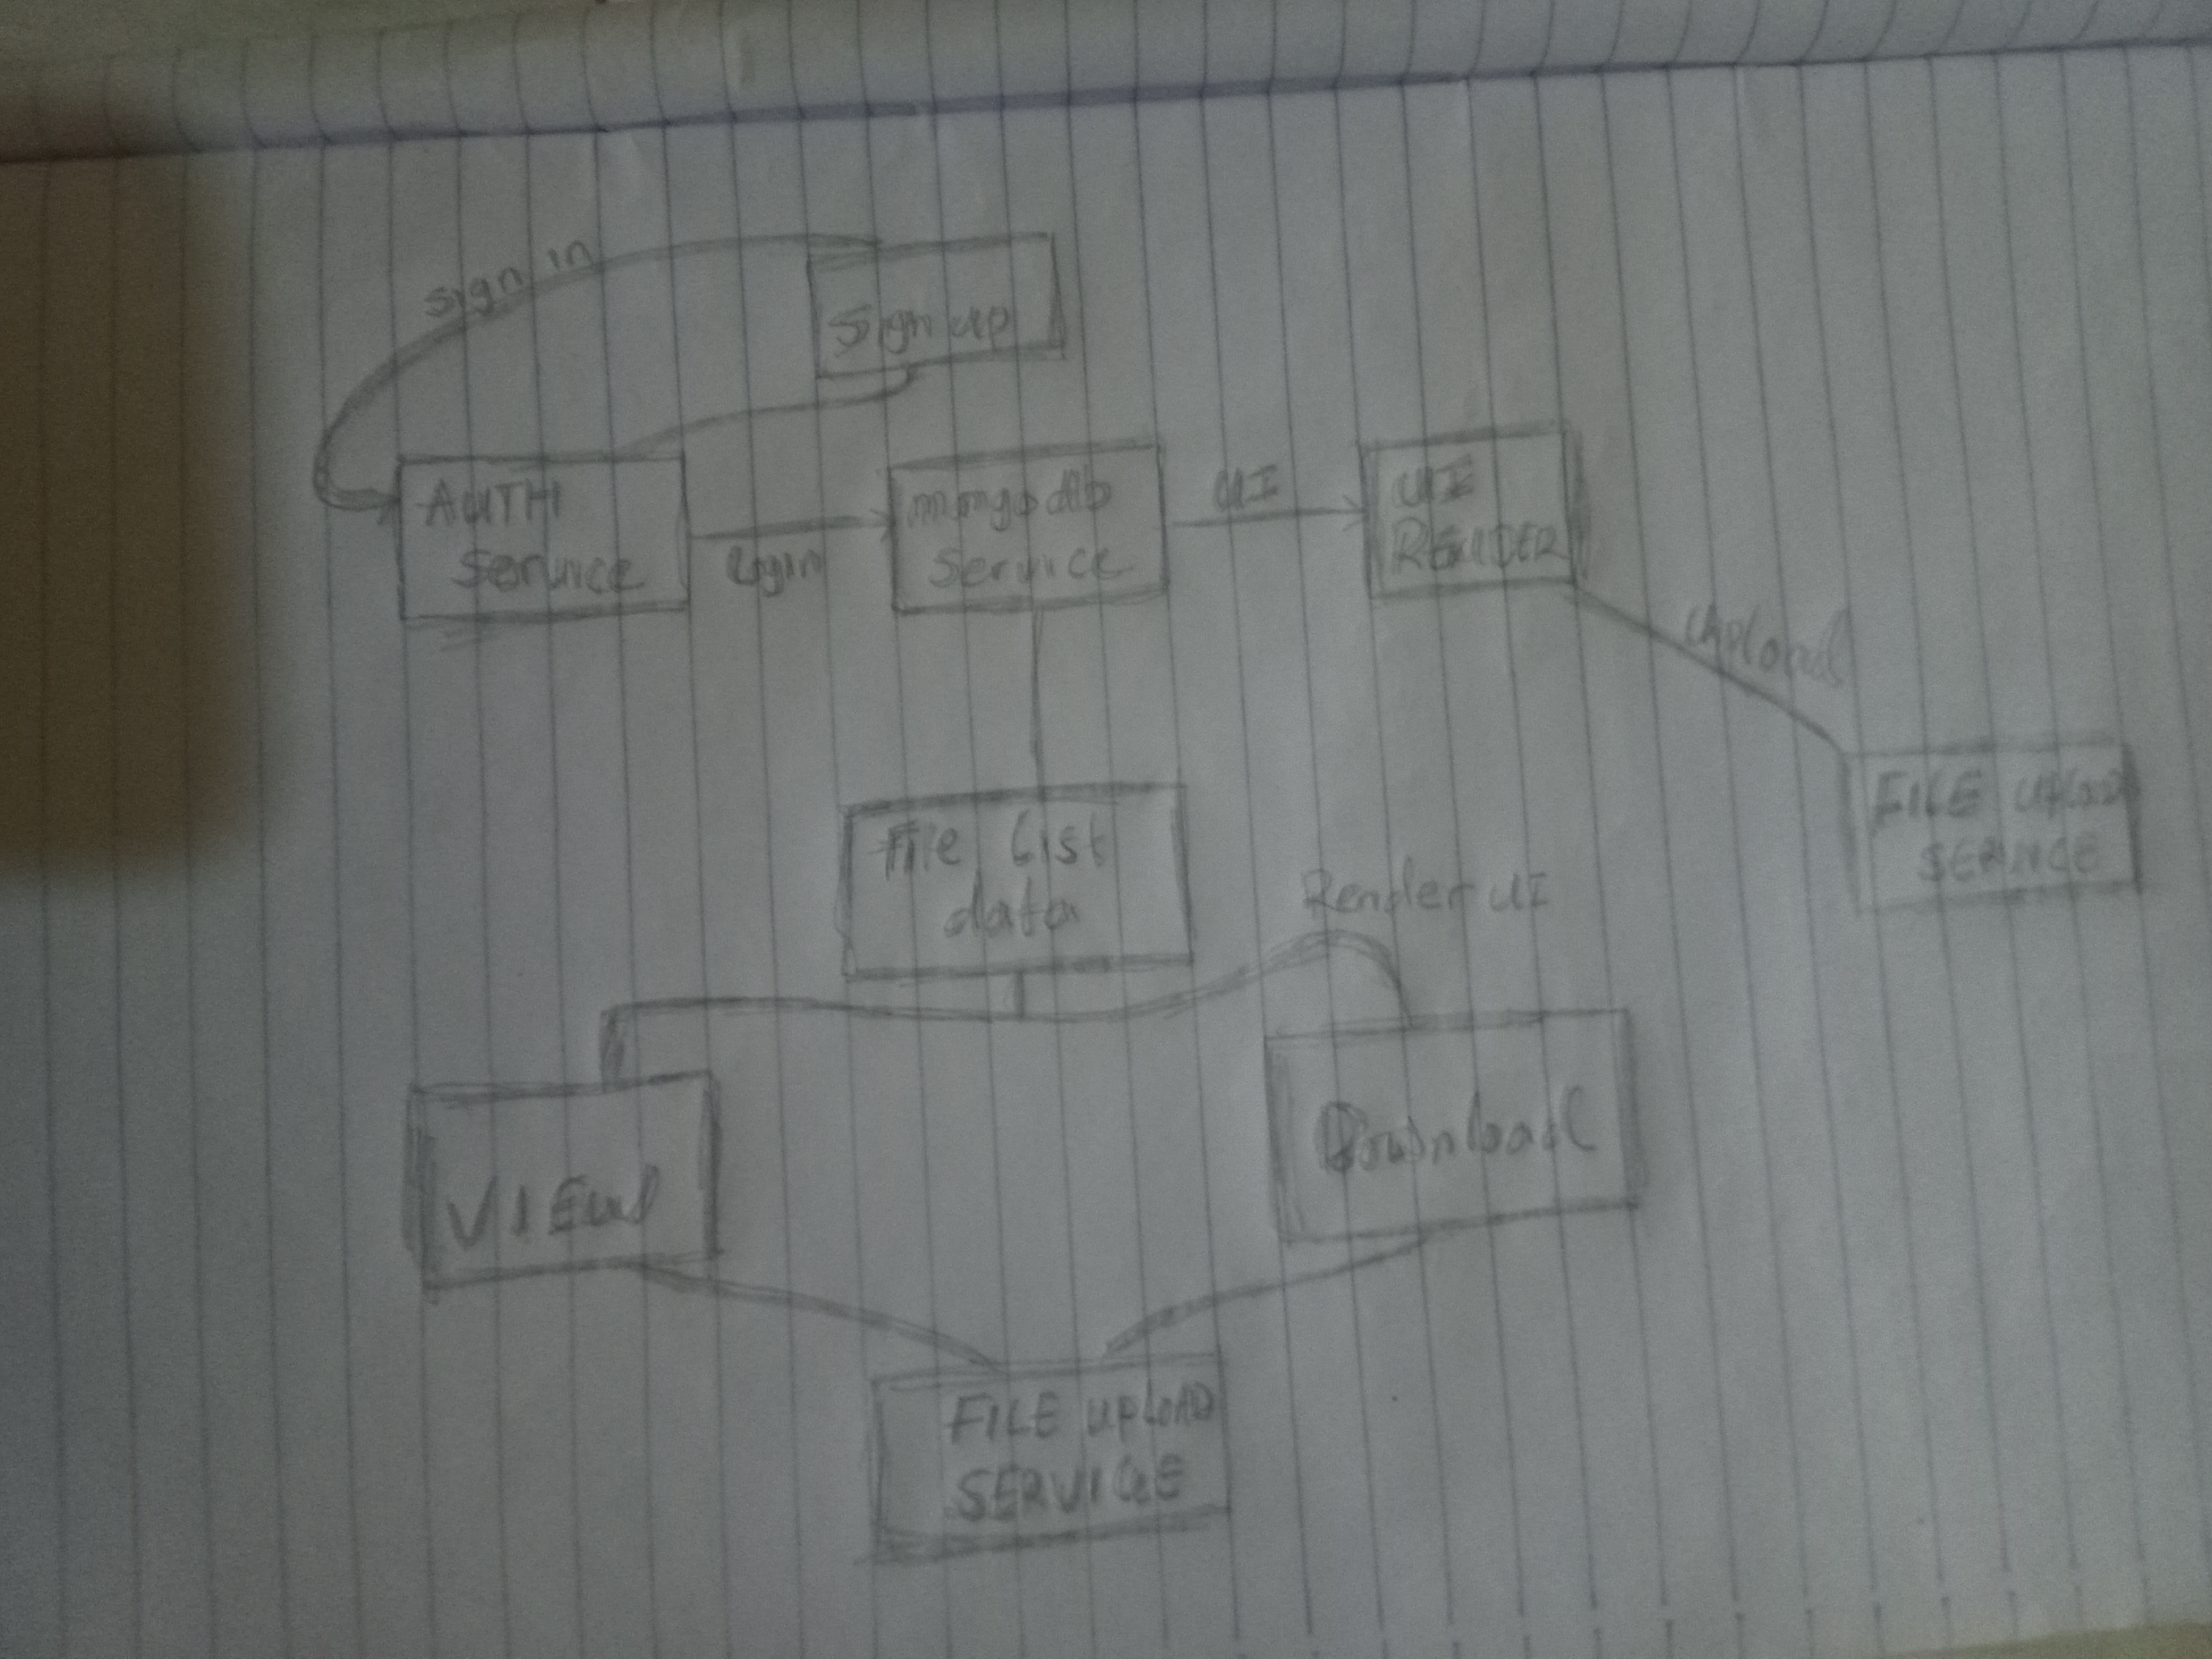 sign in
Sign up
AUTH
Service
login
mongodb
Service
UI
UI
RENDER
Upload
FILE UPLOAD
SERVICE
File list
data
Render UI
VIEW
Download
FILE UPLOAD
SERVICE